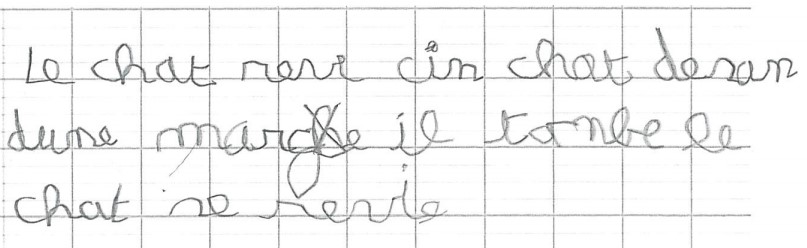 Le chat rove cin chat desan
dune marche il tombe le
chat se revle